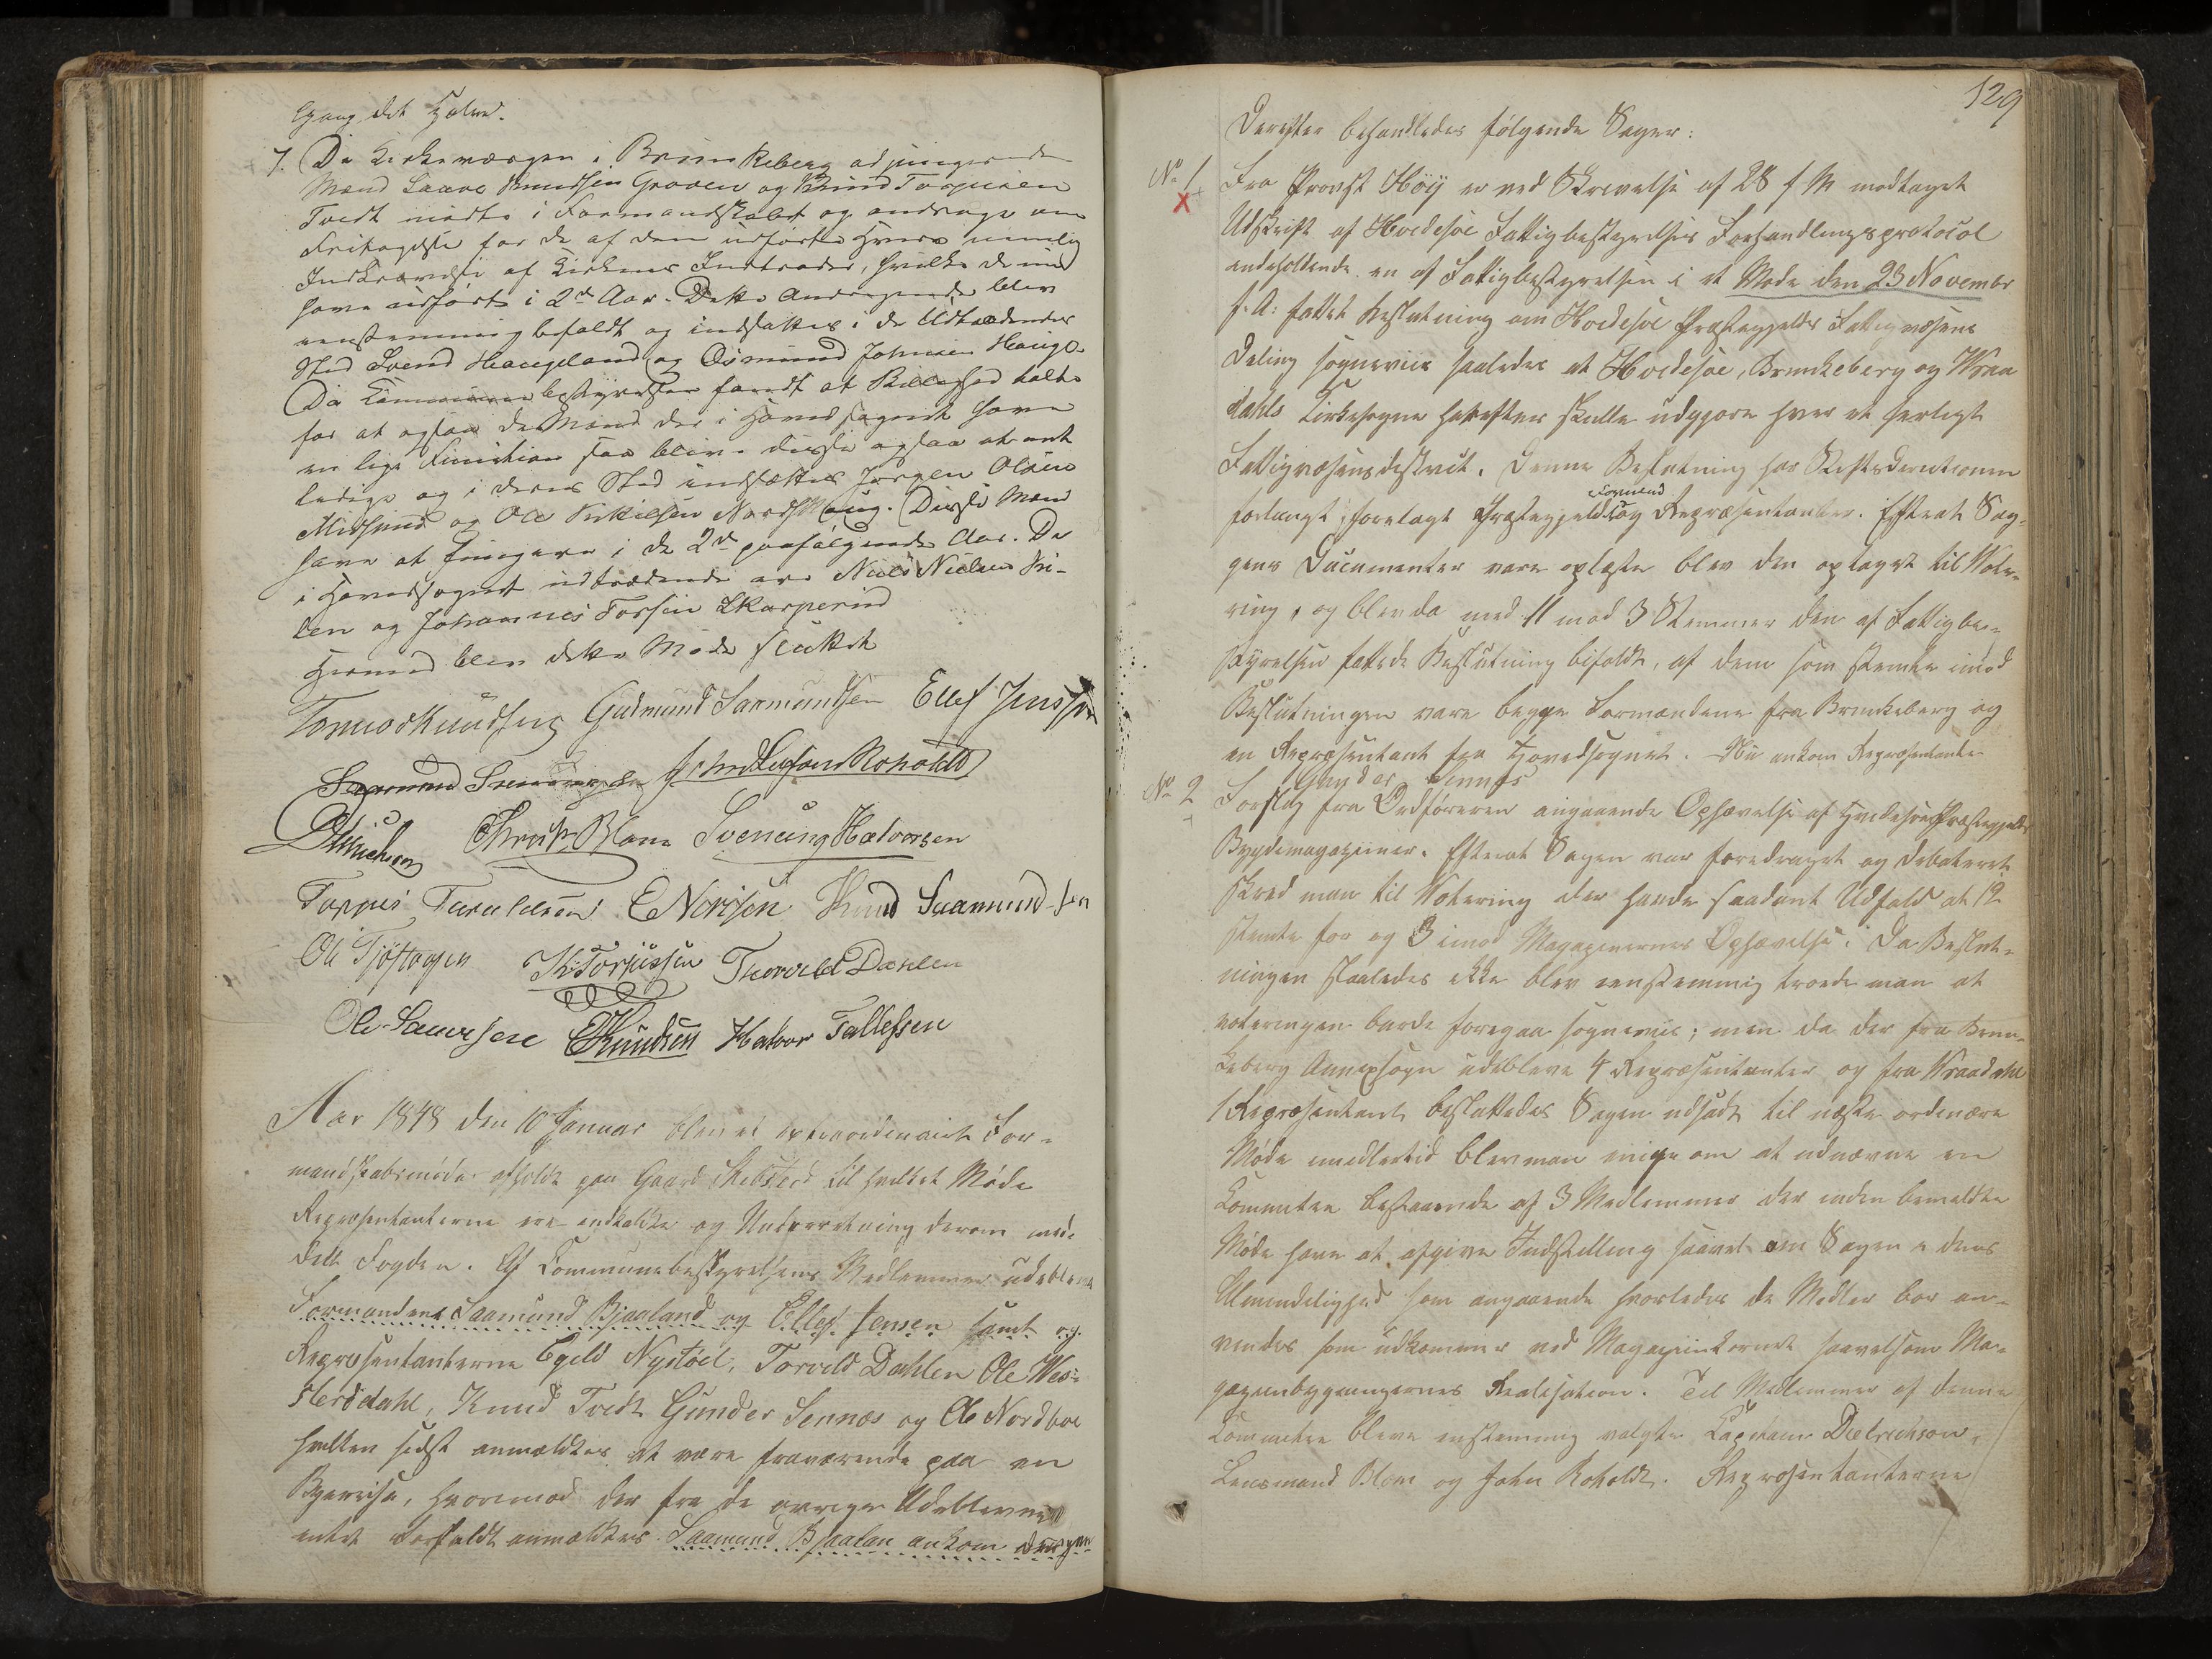 Gang det
7. Da Kirkeværgen i Brunkeberg adjungerende
Mænd Saave Knudsen Groven og Knud Torjusen
Tvedt mødte i Formandskabet og androge om
Fritagelse for de af dem udførte Hverv nemlig
Indkrævelse af Kirkens Indtægter, hvilke de nu
have udført i 2de Aar. Dette Andragende blev
eenstemmig bifaldt og indsattes i de Udtrædendes
Sted Svend Haugeland og Osmund Johnsen Hauge.
Da Communebestyrelsen fandt at
for at ogsaa de Mænd der i Hovedsognet have
en lige Function saa bleve disse ogsaa at
ledige og i deres Sted indsættes Jørgen Olsen
Midsund og Ole Kirkilsen Nordskoug. Disse Mænd
have at fungere i de 2de paafølgende Aar. De
i Hovedsognet udtrædende ere Niels Nielsen Vri-
len og Johannes Torsen Skarperud
Hermed blev dette Møde sluttet
Tormod Knudsens Gudmund Sarmundsen Ellef Jenssen
Saamund John Leifsen Roholdt
Dietrichson Christ. Blom Svenning Halvorsen
Torjus Taraldsen E Norisen Knud Saamundsen
Ole Tjøstogsen K: Torjussen Thorveld Dahlen
Ole Saavesen E Knudsen Halvor Tallefsen
Aar 1848 den 10 Januar blev et extraordinairt For-
mandskabsmøde afholdt paa Gaard til hvilket Møde
Repræsentanterne ere indkaldte og Underretning derom med-
delt Fogden. Af Communebestyrelsens Medlemmer udebleve
Formændene Saamund Bjaaland og Ellef Jensen samt og
Repræsentanterne Egeld Nystøel, Torveld Dahlen Ole Wes-
sterddahl, Knud Tvedt Gunder Sennæs og Ole Nordboe
hvilken sidst anmeldtes at være fraværende paa en
Byereise, hvorimod der fra de øvrige Udeblevne
intet Forfald anmeldtes. Saamund Bjaalan ankom
129
Derefter behandledes følgende Sager:
No 1 Fra Provst Höÿ er ved Skrivelse af 28 f M modtaget
X Udskrift af Hvidesøe Fattigbestyrelses Forhandlingsprotocol
indeholdende en af Fattigbestyrelsen i et Møde den 23 Novembr
f. A: fattet Beslutning om Hvidesøe Præstegjelds Fattigvæsens
Deling sogneviis saaledes at Hvidesøe, Brunkeberg og Wraa
dahls Kirkesogne herefter skulle udgjøre hver et særligt
Fattigvæsensdistrict. Denne Beslutning har Stiftsdirectionen
forlangt forelagt Præstegjeldets Formænd og Repræsentanter. Efterat Sa-
gens Documenter vare oplæste blev den optaget til Vote-
ring, og blev da med 11 mod 3 Stemmer den af Fattigbe-
styrelsen fattede Beslutning bifaldt, af dem som stemte imod
Beslutningen vare begge Formændene fra Brunkeberg og
en Repræsentant fra Hovedsognet. Nu ankom Repræsentanten
Gunder Sennæs
No 2 Forslag fra Ordføreren angaaende Ophævelse af Hvidesøe Præstegjelds
Bygdemagaziner. Efterat Sagen var foredraget og debateret
skred man til Votering der havde saadant Udfald at 12
stemte for og 3 imod Magazinernes Ophævelse. Da Beslut-
ningen saaledes ikke blev eenstemmig troede man at
voteringen burde foregaa sogneviis; men da der fra Brun-
keberg Annexsogn udebleve 4 Repræsentanter og fra Wraadahl
1 Repræsentant besluttedes Sagen udsadt til næste ordinære
Møde imidlertid blev man enige om at udnævne en
Committee bestaaende af 3 Medlemmer der inden bemeldte
Møde have at afgive Indstilling saavel om Sagen i dens
Almindelighed som angaaende hvorledes de Midler bør an-
vendes som udkommer ved Magazinkornets saavelsom Ma-
gazinbygningernes Realisation. Til Medlemmer af denne
Committee bleve enstemmig valgte Capitain Dietrichson,
Lensmand Blom og John Roholdt. Repræsentanterne